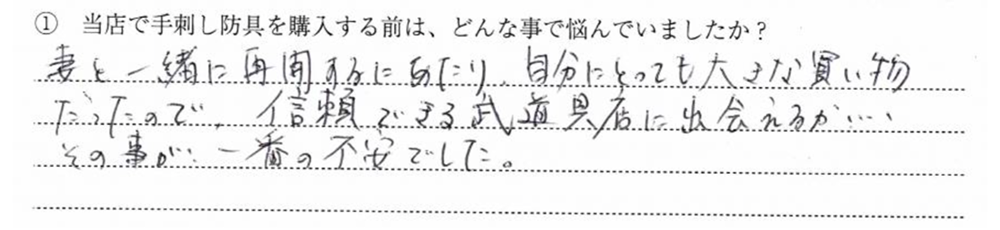 ① 当店で手刺し防具を購入する前は、どんな事で悩んでいましたか？
妻と一緒に再開するにあたり、自分にとっても大きな買い物
だったので、信頼できる武道具店に出会えるか…
その事が、一番の不安でした。